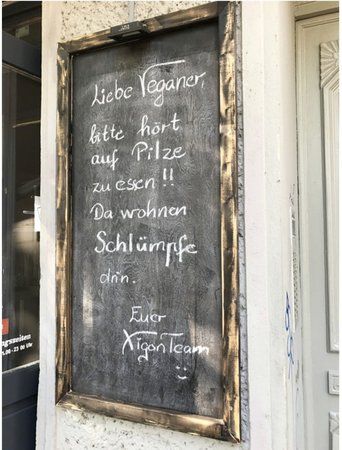 Liebe Veganer,
bitte hört
auf Pilze
zu essen!!
Da wohnen
Schlümpfe
drin.
Euer
XigonTeam